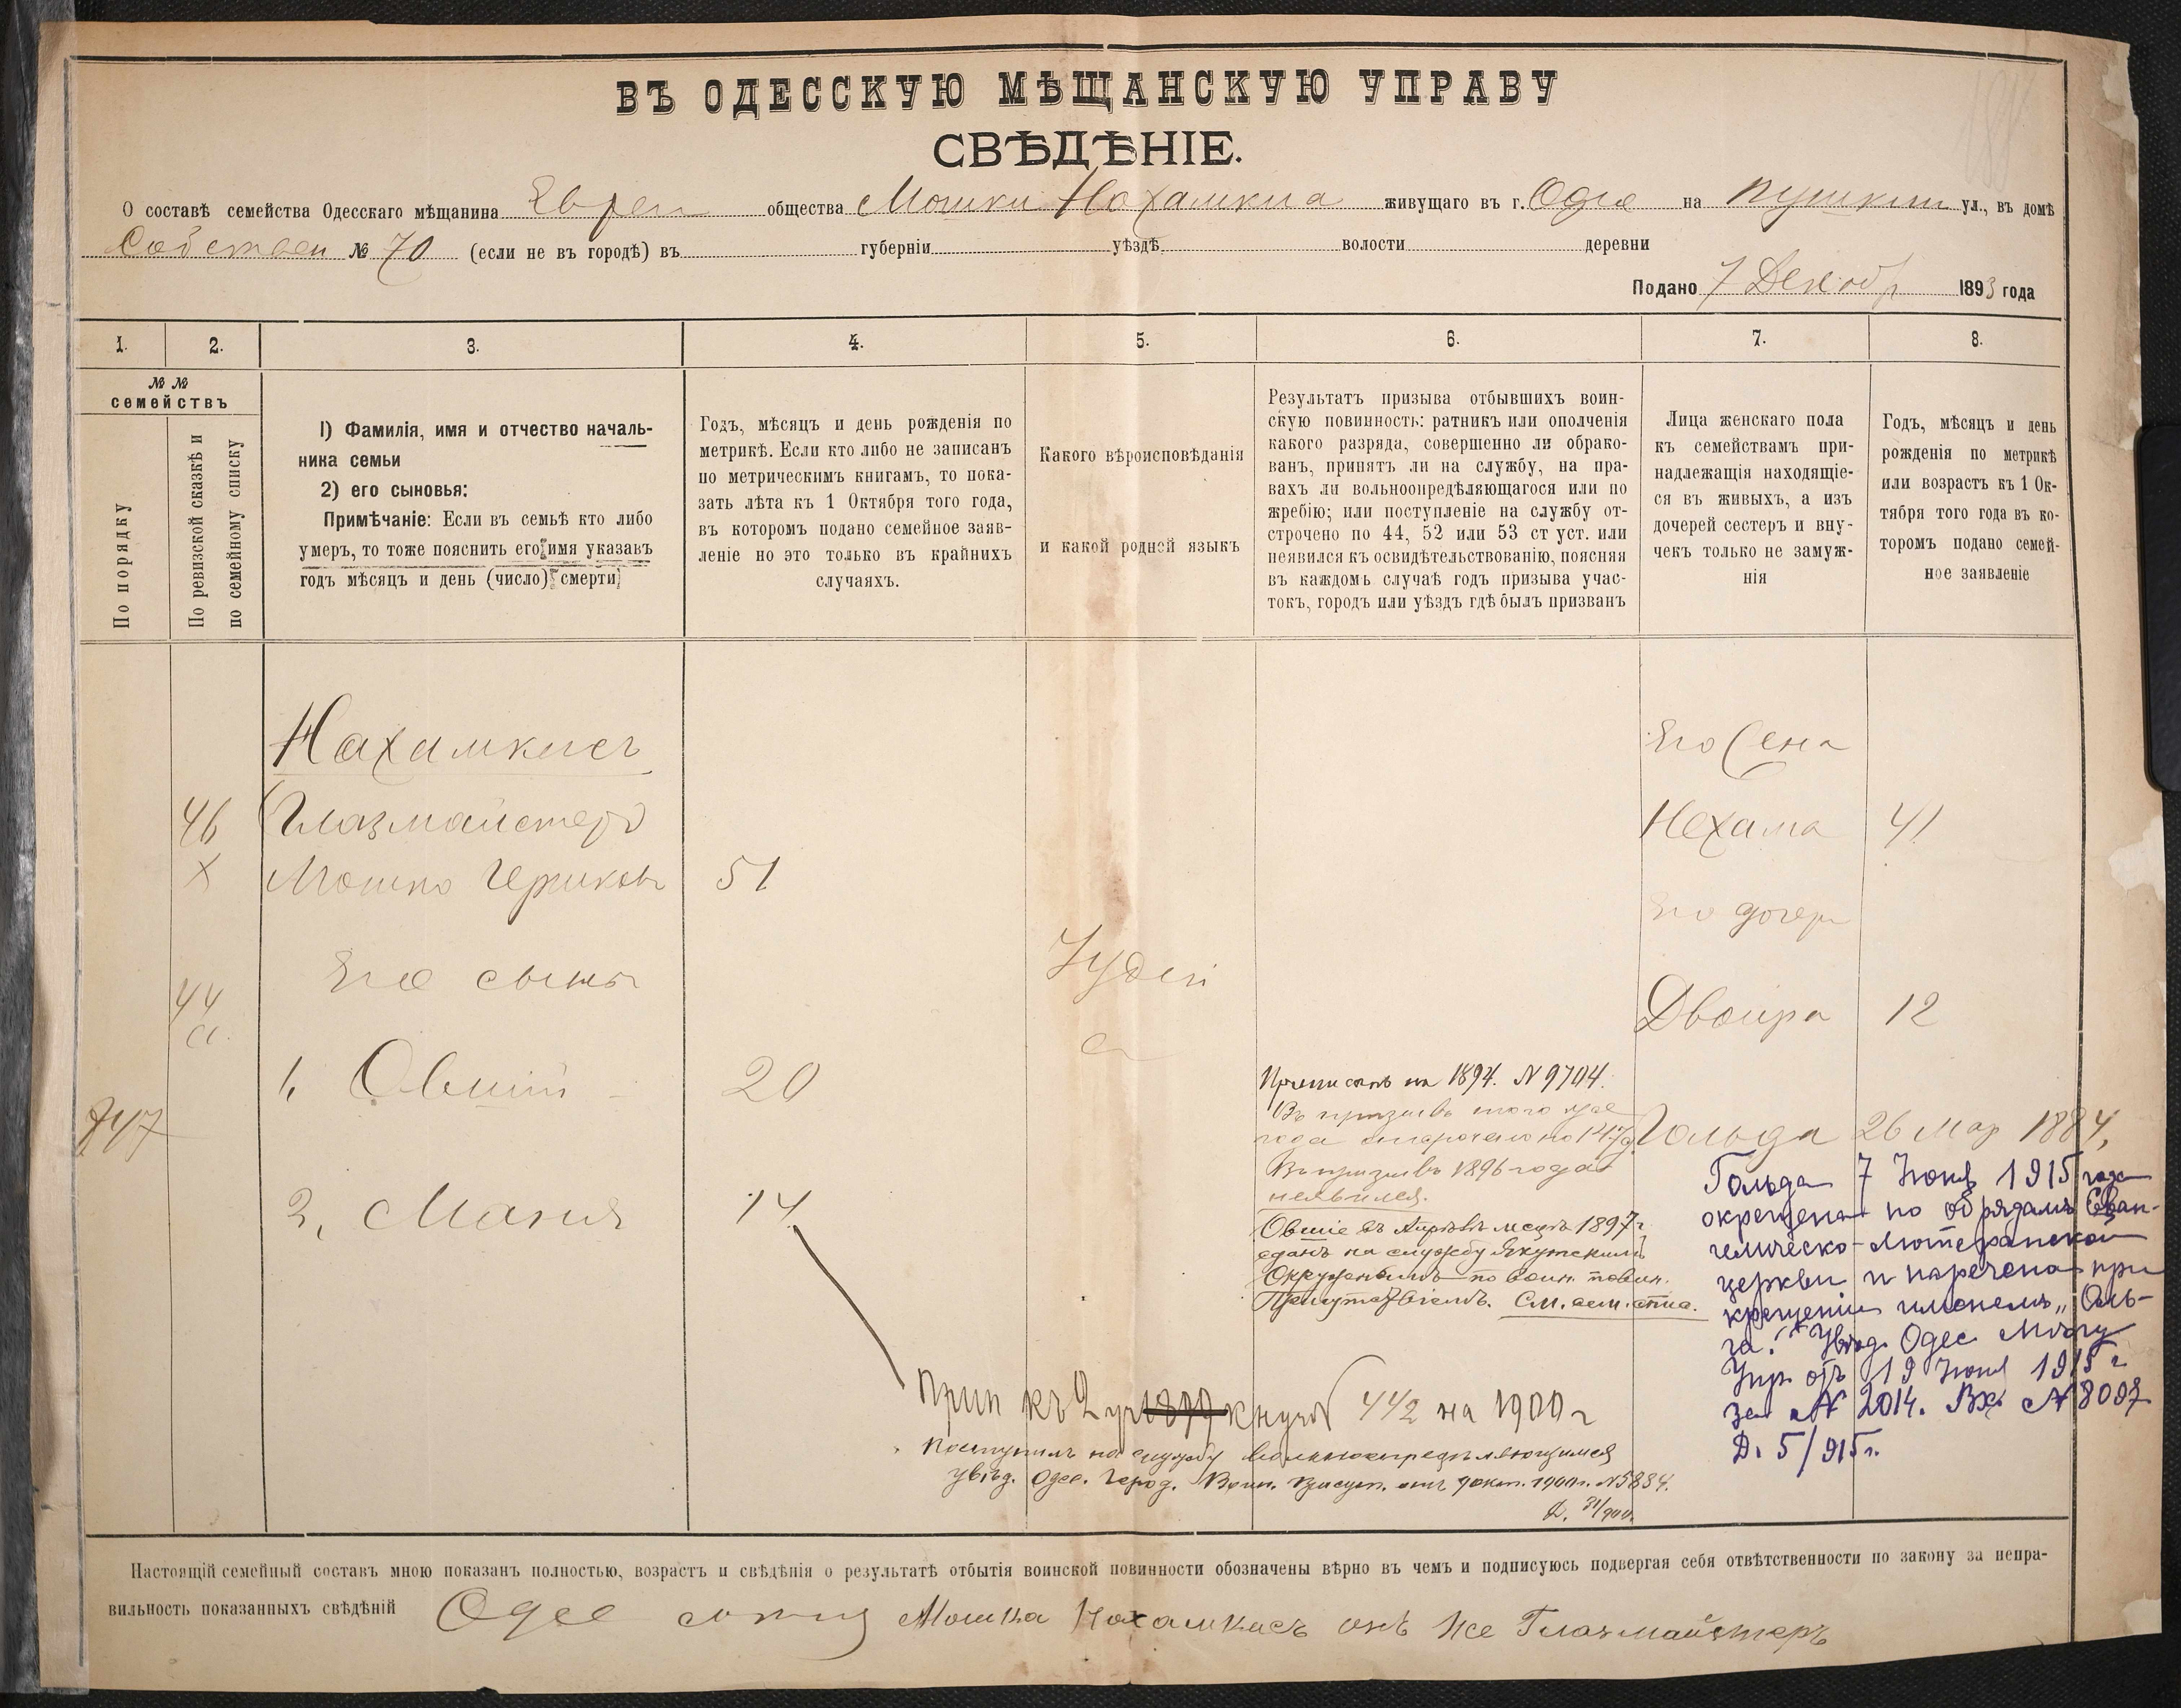 ВЪ ОДЕССКУЮ МѢЩАНСКУЮ УПРАВУ
СВѢДѢНІЕ.
О составѣ семейства Одесскаго мѣщанина Евреи общества Мошки Нахамкиса живущаго въ г. Одес на Пушкин ул., въ домѣ
Собствен № 70 (если не въ городѣ) въ губерніи уѣздѣ волости деревни
Подано 7 Декабр 1893 года
1. 2. 3. 4. 5. 6. 7. 8.
№ №
семействъ
По порядку
По ревизской сказкѣ и
по семейному списку
1) Фамилія, имя и отчество началь-
ника семьи
2) его сыновья:
Примѣчаніе: Если въ семьѣ кто либо
умеръ, то тоже пояснить его имя указавъ
годъ мѣсяцъ и день (число) смерти
Годъ, мѣсяцъ и день рожденія по
метрикѣ. Если кто либо не записанъ
по метрическимъ книгамъ, то пока-
зать лѣта къ 1 Октября того года,
въ которомъ подано семейное заяв-
леніе но это только въ крайнихъ
случаяхъ.
Какого вѣроисповѣданія
и какой родной языкъ
Результатъ призыва отбывшихъ воин-
скую повинность: ратникъ или ополченія
какого разряда, совершенно ли обрако-
ванъ, принятъ ли на службу, на пра-
вахъ ли вольноопредѣляющагося или по
жребію; или поступленіе на службу от-
строчено по 44, 52 или 53 ст уст. или
неявился къ освидѣтельствованію, поясняя
въ каждомъ случаѣ годъ призыва учас-
токъ, городъ или уѣздъ гдѣ былъ призванъ
Лица женскаго пола
къ семействамъ при-
надлежащія находящіе-
ся въ живыхъ, а изъ
дочерей сестеръ и вну-
чекъ только не замуж-
нія
Годъ, мѣсяцъ и день
рожденія по метрикѣ
или возрастъ къ 1 Ок-
тября того года въ ко-
торомъ подано семей-
ное заявленіе
Нахамкисъ
46 Глазмайстеръ
Х Мошко 51
44
а.
Его сыны
1, Овшій 20
747
2, Мания 14
Іудей
Приписанъ на 1894. N 9704.
Въ призывъ того же
года отсрочено по
Въ призывъ 1896 года
неявился.
Овшіе въ Апрѣлѣ мсцѣ 1897 г.
сданъ на службу Якутскимъ
Окружнымъ по воин. повин.
Присутствіемъ. См. сем. спис.
Его жена
Нехама 41
Его дочери
Двойра 12
Гольда 26 Мар 1884,
Гольда 7 Іюня 1915 года
окрещена по обрядамъ Еван-
гелическо-Лютеранской
церкви и наречена при
крещеніи именемъ „Оль-
га." Увѣд. Одес. Мѣщ.
Упр. отъ 19 Іюня 1915 г.
за № 2014. Вх. № 8097
Д. 5/915 г.
Прип къ 2 уч 1899 к 442 на 1900 г
Поступилъ на службу вольноопредѣляющимся
увѣд. Одес. Город. Воин. Присут. отъ 9 окт. 1900 г. N 5884.
Д. 31/900.
Настоящій семейный составъ мною показанъ полностью, возрастъ и свѣдѣнія о результатѣ отбытія воинской повинности обозначены вѣрно въ чемъ и подписуюсь подвергая себя отвѣтственности по закону за непра-
вильность показанныхъ свѣдѣній Одес Мошка Нохамкисъ онъ же Глазмайстеръ